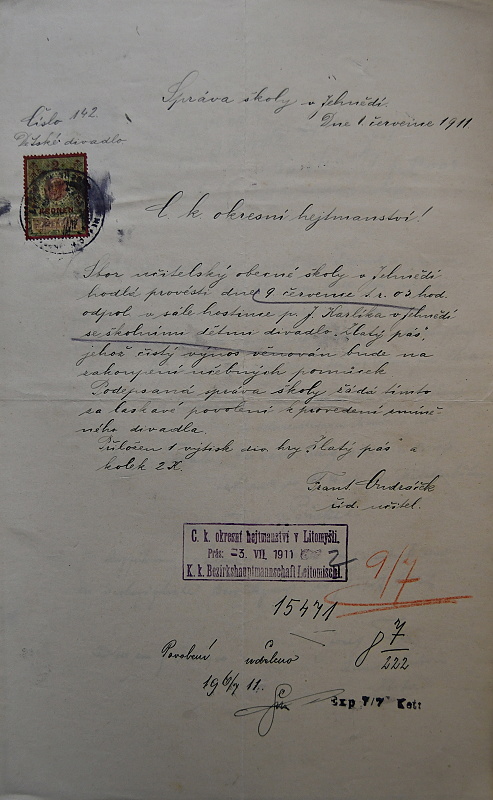 Správa školy v Jehnědí.
Dne 1. července 1911
Číslo 142.
Dětské divadlo
C. k. okresní hejtmanství!
Sbor učitelský obecné školy v Jehnědí
hodlá provésti dne 9 července t. r. o 3 hod.
odpol. v sále hostince p. J. Karlíka v Jehnědí
se školními dětmi divadlo „Zlatý pás",
jehož čistý výnos věnován bude na
zakoupení učebných pomůcek.
Podepsaná správa školy žádá tímto
za laskavé povolení k provedení zmíně-
ného divadla.
Přiložen 1 výtisk div. hry Zlatý pás a
kolek 2 K.
Frant. Ondráček
říd. učitel.
C. k. okresní hejtmanství v Litomyšli.
Präs: -3. VII. 1911 2
K. k. Bezirkshauptmannschaft Leitomischl.
9/7
15471
7
222
Povolení uděleno
19 6/7 11.
Exp 7/7 Kett